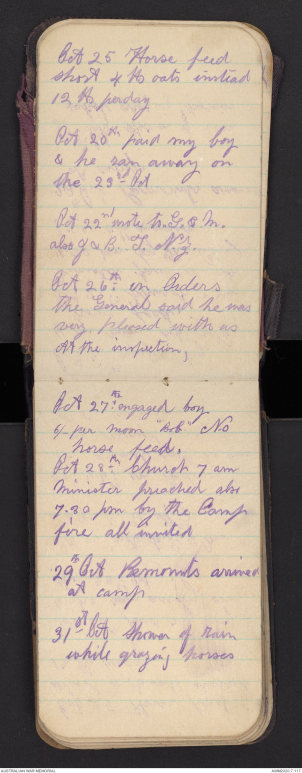 Oct 25 Horse feed
short 4 lb oats instead
12 lb perday
Oct 20th paid my boy
& he ran away on
the 23rd Oct
Oct 22nd wrote to. G. & M.
also J & B. T. N.Z.
Oct 26th in Orders
the General said he was
very pleased with us
at the inspection,
Oct 27th engaged boy
per moon "Bob" No
horse feed.
Oct 28th Church 7 am
Minister preached also
7.30 pm by the Camp
fire all invited
29th Oct Remounts arrived
at camp
31st Oct Shower of rain
while grazing horses
AUSTRALIAN WAR MEMORIAL